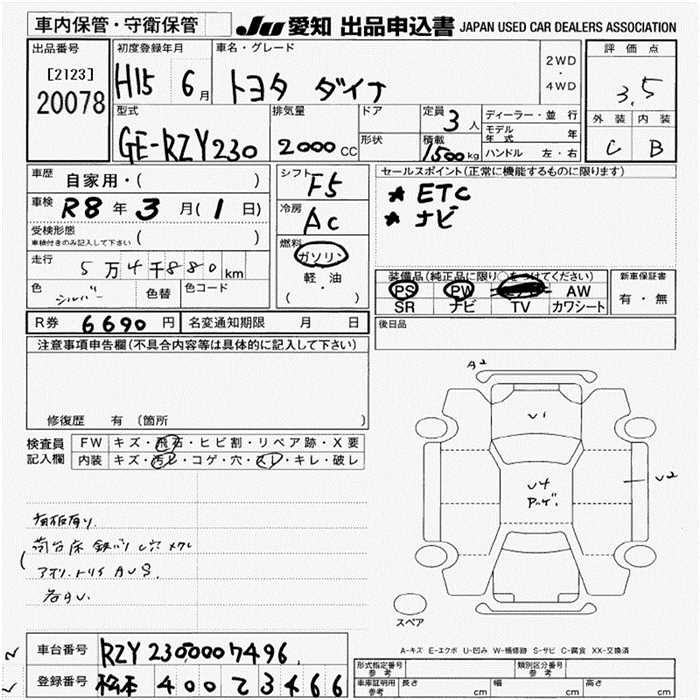 車内保管・守衛保管
JU 愛知 出品申込書 JAPAN USED CAR DEALERS ASSOCIATION
出品番号
[2123]
20078
初度登録年月
H15 6月
車名・グレード
トヨタ ダイナ
2WD
・
4WD
評価点
3.5
外装 内装
C B
型式
GE-RZY230
排気量
2000CC
ドア
形状
定員
3人
積載
1500kg
ディーラー・並行
モデル年式 年
ハンドル 左・右
車歴 自家用・( )
車検 R8年3月(1日)
受検形態
車検付きのみ記入して下さい ( )
走行 5万4千880km
色 シルバー 色替 色コード
シフト F5
冷房 AC
燃料
ガソリン
軽・油
( )
セールスポイント(正常に機能するものに限ります)
★ ETC
★ ナビ
装備品(純正品に限り○をつけてください)
PS PW AW
SR ナビ TV カワシート
新車保証書
有・無
R券 6690円 名変通知期限 月 日
後日品
注意事項申告欄(不具合内容等は具体的に記入して下さい)
修復歴 有 (箇所 )
検査員記入欄
FW キズ・飛石・ヒビ割・リペア跡・X要
内装 キズ・汚レ・コゲ・穴・スレ・キレ・破レ
荷台床 鉄バリ
アオリ.トリイ AUS.
A2
U1
U4
U2
スペア
A-キズ E-エクボ U-凹み W-補修跡 S-サビ C-腐食 XX-交換済
車台番号 RZY2300007496
登録番号 松本 400 て 3466
形式指定番号 参考
類別区分番号 参考
車庫証明用 参考 長さ cm 幅 cm 高さ cm